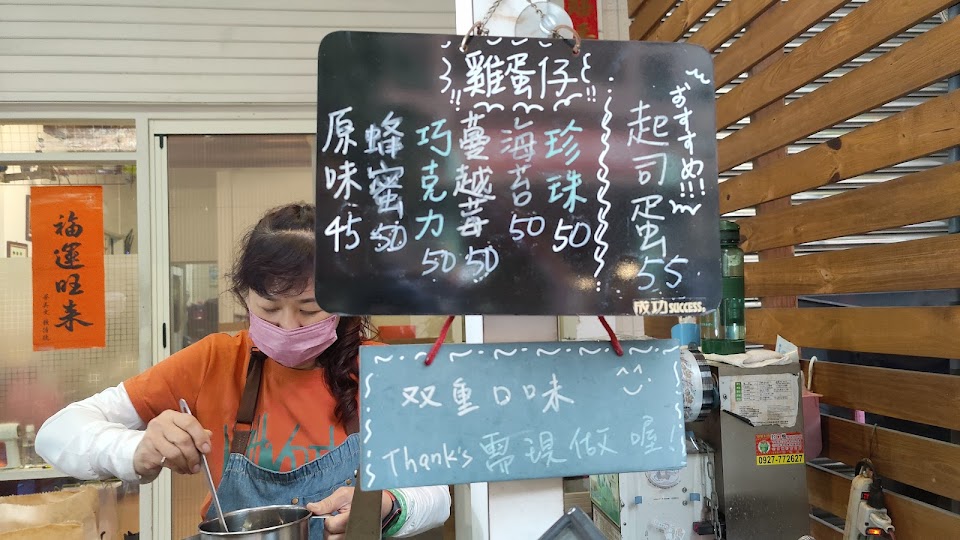 雞蛋仔
原味 45
蜂蜜 50
巧克力 50
蔓越莓 50
海苔 50
珍珠 50
起司蛋 55
おすすめ!!!
成功 SUCCESS
双重口味
Thank's 需現做喔!
福運旺来
0927-772627